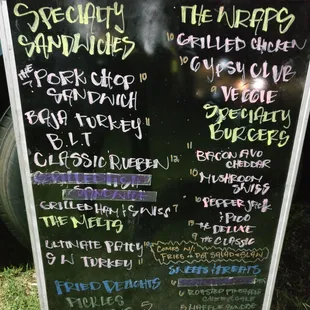 SPECIALTY
SANDWICHES
THE PORK CHOP 10
SANDWICH
BAJA TURKEY 11
B.L.T
CLASSIC RUEBEN 12
GRILLED HAM & SWISS 9
THE MELTS
ULTIMATE PATTY
S.W TURKEY 11
FRIED DELIGHTS
PICKLES 5
THE WRAPS
10 GRILLED CHICKEN
10 GYPSY CLUB
9 VEGGIE
SPECIALTY
BURGERS
11 BACON AVO
CHEDDAR
10 MUSHROOM
SWISS
10 PEPPER JACK
& PICO
THE DELUXE
9 THE CLASSIC
COMES W/
FRIES OR POT SALAD OR SLAW
SWEETS & TREATS